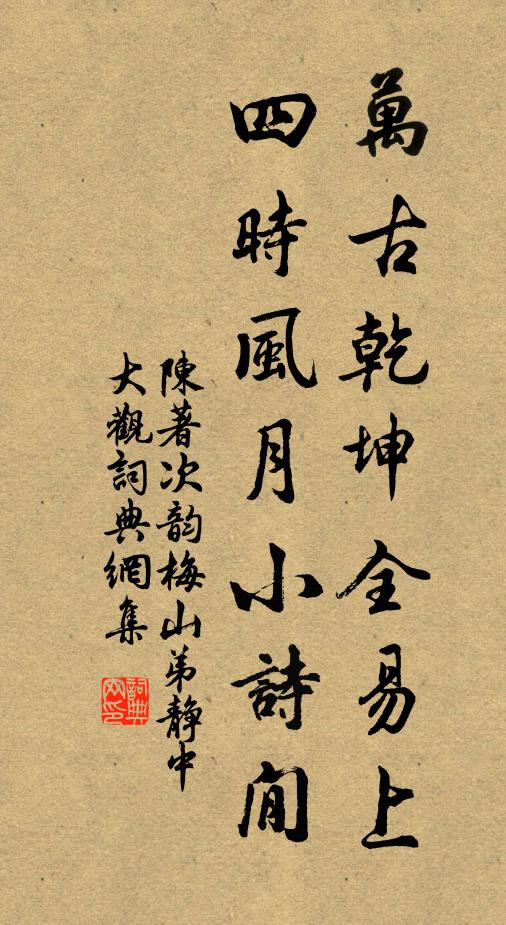 萬古乾坤全易上
四時風月小詩閒
陳著次韵梅山弟靜中
大觀詞典網集
詞典網印